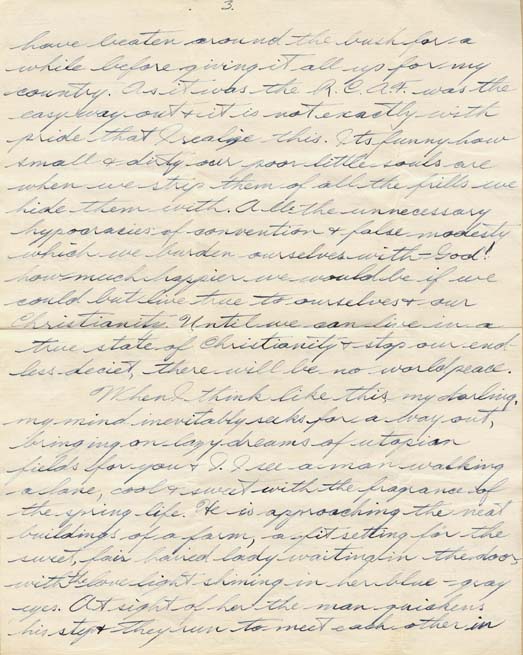 3.
have beaten around the bush for a
while before giving it all up for my
country. As it was the R.C.A.F. was the
easy way out & it is not exactly with
pride that I realize this. Its funny how
small & dirty our poor little souls are
when we strip them of all the frills we
hide them with. All the unnecessary
hypocracies of convention & false modesty
which we burden ourselves with - God!
how much happier we would be if we
could but live true to ourselves & our
Christianity. Until we can live in a
true state of Christianity & stop our end
less deciet, there will be no world peace.
When I think like this, my darling,
my mind inevitably seeks for a way out,
bringing on lazy dreams of utopian
fields for you & I. I see a man walking
a lane, cool & sweet with the fragrance of
the spring life. He is approaching the neat
buildings of a farm, a fit setting for the
sweet, fair haired lady waiting in the door
with the love light shining in her blue-gray
eyes. At sight of her the man quickens
his step & they run to meet each other in